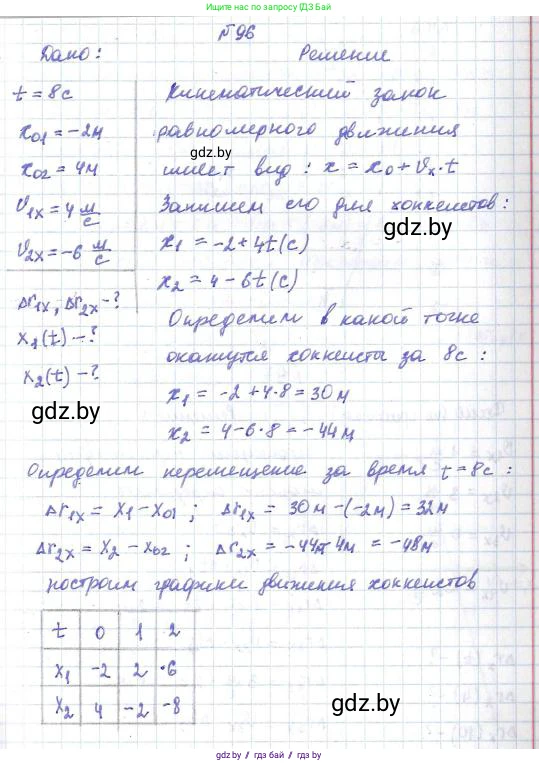 Пишите нам в телеграм если нет ответа на задание
№96
Дано:
Решение
t = 8 с
x01 = -2м
x02 = 4м
v1x = 4 м/с
v2x = -6 м/с
Δr1x, Δr2x - ?
x1(t) - ?
x2(t) - ?
gdz.by
Кинематический закон
равномерного движения
gdz.by
имеет вид: x = x0 + vx · t
Запишем его для хоккеистов:
gdz.by
x1 = -2 + 4t (с)
x2 = 4 - 6t (с)
Определим в какой точке
окажутся хоккеисты за 8с:
x1 = -2 + 4·8 = 30 м
x2 = 4 - 6·8 = -44 м
Определим перемещение за время t = 8с:
Δr1x = x1 - x01; Δr1x = 30м - (-2м) = 32м
Δr2x = x2 - x02; Δr2x = -44м - 4м = -48м
построим графики движения хоккеистов
t 0 1 2
x1 -2 2 ·6
x2 4 -2 -8
gdz.by
gdz.by / гдз бай / гдз by